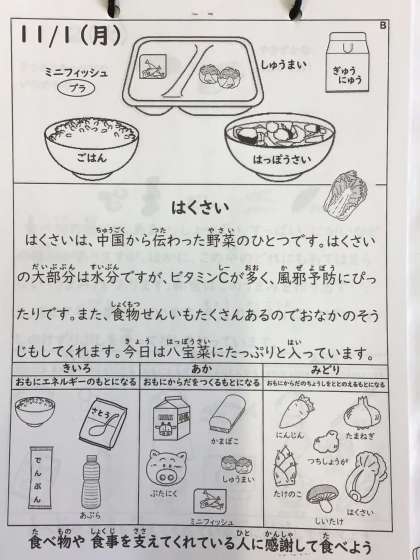 11/1(月)
B
ミニフィッシュ
プラ
しゅうまい
ぎゅう
にゅう
ごはん
はっぽうさい
はくさい
はくさいは、中国から伝わった野菜のひとつです。はくさい
の大部分は水分ですが、ビタミンCが多く、風邪予防にぴっ
たりです。また、食物せんいもたくさんあるのでおなかのそう
じもしてくれます。今日は八宝菜にたっぷりと入っています。
きいろ
あか
みどり
おもにエネルギーのもとになる
おもにからだをつくるもとになる
おもにからだのちょうしをととのえるもとになる
さとう
でんぷん
あぶら
かまぼこ
しゅうまい
ぶたにく
ミニフィッシュ
にんじん
たまねぎ
つちしょうが
たけのこ
はくさい
しいたけ
食べ物や食事を支えてくれている人に感謝して食べよう